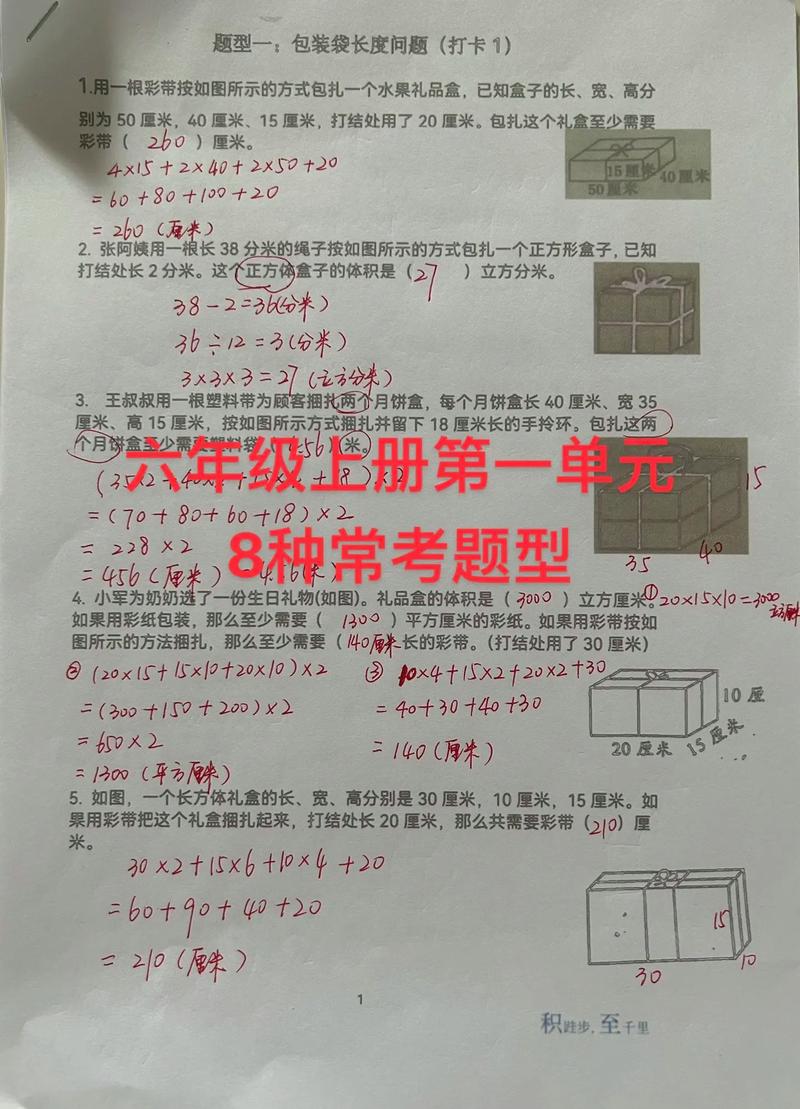 题型一：包装袋长度问题（打卡1）
1.用一根彩带按如图所示的方式包扎一个水果礼品盒，已知盒子的长、宽、高分
别为50厘米，40厘米、15厘米，打结处用了20厘米。包扎这个礼盒至少需要
彩带（ 260 ）厘米。
15厘米
40厘米
50厘米
4×15+2×40+2×50+20
=60+80+100+20
=260(厘米)
2. 张阿姨用一根长38分米的绳子按如图所示的方式包扎一个正方形盒子，已知
打结处长2分米。这个正方体盒子的体积是（ 27 ）立方分米。
38-2=36(分米)
36÷12=3(分米)
3×3×3=27(立方分米)
3. 王叔叔用一根塑料带为顾客捆扎两个月饼盒，每个月饼盒长40厘米、宽35
厘米、高15厘米，按如图所示方式捆扎并留下18厘米长的手拎环。包扎这两
个月饼盒至少需要塑料袋 米。
六年级上册第一单元
8种常考题型
15
35
40
=(70+80+60+18)×2
=228×2
=456(厘米)
4. 小军为奶奶选了一份生日礼物(如图)。礼品盒的体积是（ 3000 ）立方厘米。
①20×15×10=3000
立方厘米
如果用彩纸包装，那么至少需要（ 1300 ）平方厘米的彩纸。如果用彩带按如
图所示的方法捆扎，那么至少需要（140厘米长的彩带。（打结处用了30厘米）
②(20×15+15×10+20×10)×2
=(300+150+200)×2
=650×2
=1300(平方厘米)
③10×4+15×2+20×2+30
=40+30+40+30
=140(厘米)
10厘
20厘米
15厘米
5. 如图，一个长方体礼盒的长、宽、高分别是30厘米，10厘米，15厘米。如
果用彩带把这个礼盒捆扎起来，打结处长20厘米，那么共需要彩带（210）厘
米。
30×2+15×6+10×4+20
=60+90+40+20
=210(厘米)
15
10
30
1
积跬步，至千里